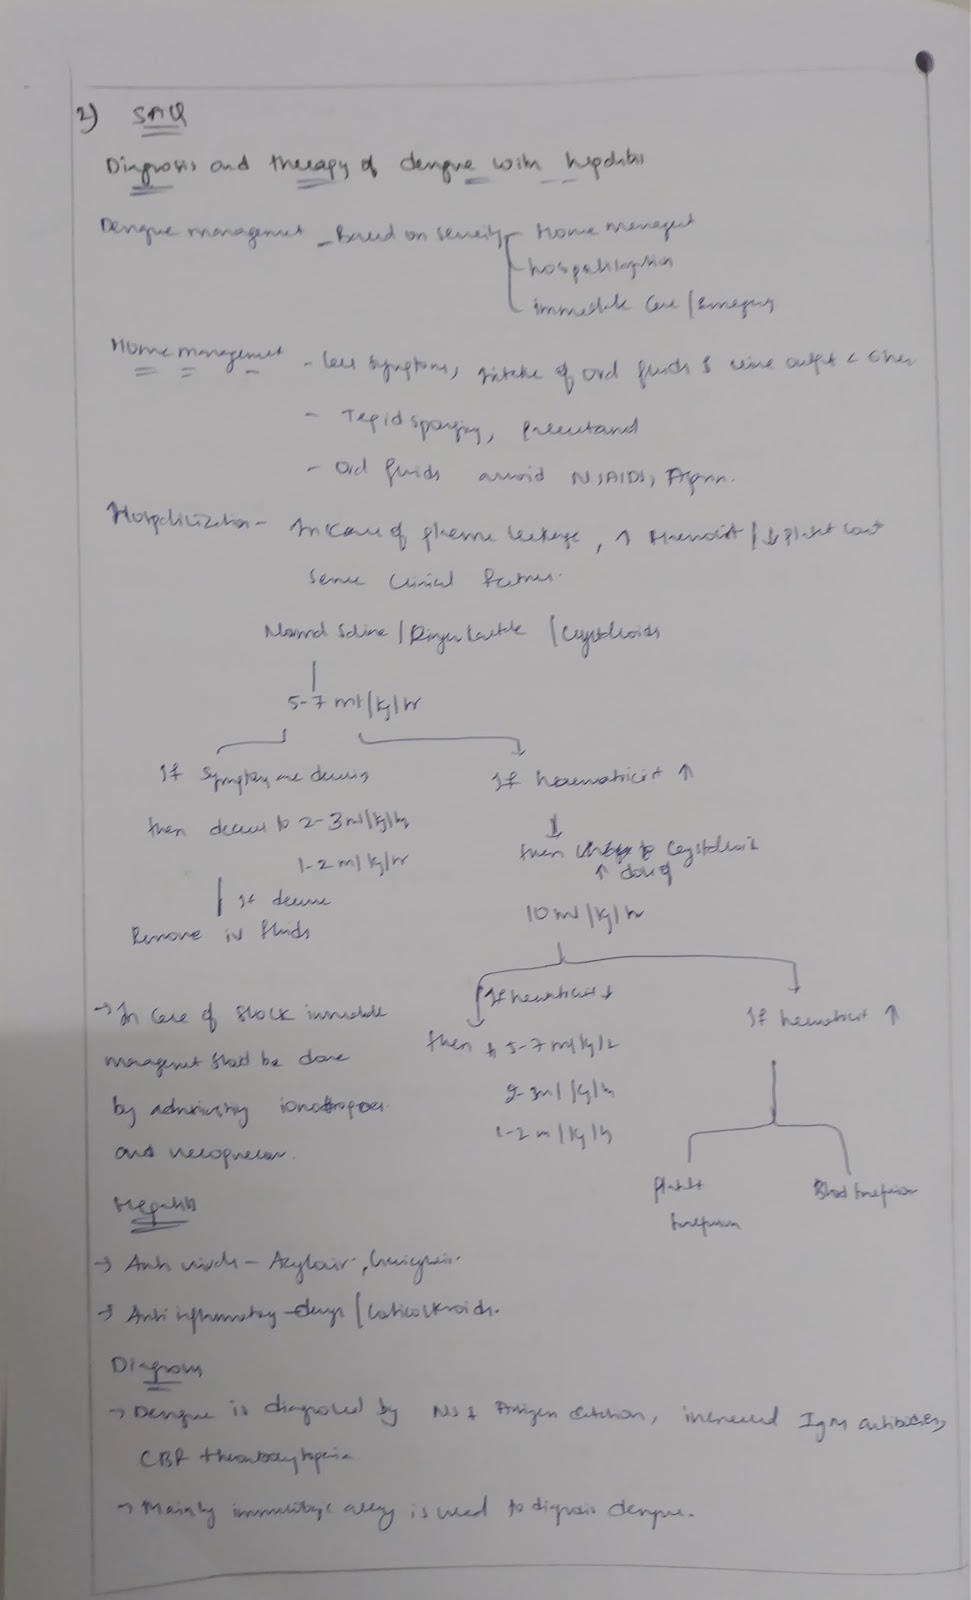 2) SAQ
Diagnosis and therapy of dengue with hepatitis
Dengue management - Based on severity - Home managent
hospitalization
immediate care / Emergency
Home management - less symptoms, intake of oral fluids & urine output < 6hrs
- Tepid sponging, paracetamol
- oral fluids avoid NSAIDs, Aspirin.
Hospitalization - In case of plasma leakage, ↑ Haematocrit / ↓ platelet count
severe clinical features.
Normal Saline / Ringer Lactate / Crystalloids
5-7 ml/kg/hr
If symptoms are decreasing
If haematocrit ↑
then decrease to 2-3 ml/kg/hr
1-2 ml/kg/hr
then to crystalloid
↑ dose of
If decrease
Remove iv fluids
10 ml/kg/hr
If haematocrit ↓
If haematocrit ↑
→ In case of shock immediate
management should be done
by administering ionotropes
and vasopressor.
then to 5-7 ml/kg/hr
2-3 ml/kg/hr
1-2 ml/kg/hr
Platelet
tranfusion
Blood tranfusion
Hepatitis
→ Anti virals - Acylovir,
→ Anti inflammatory drugs / Corticosteroids.
Diagnosis
→ Dengue is diagnosed by NS1 Antigen detection, increased IgM antibodies,
CBP thrombocytopenia
→ Mainly is used to dignosis dengue.